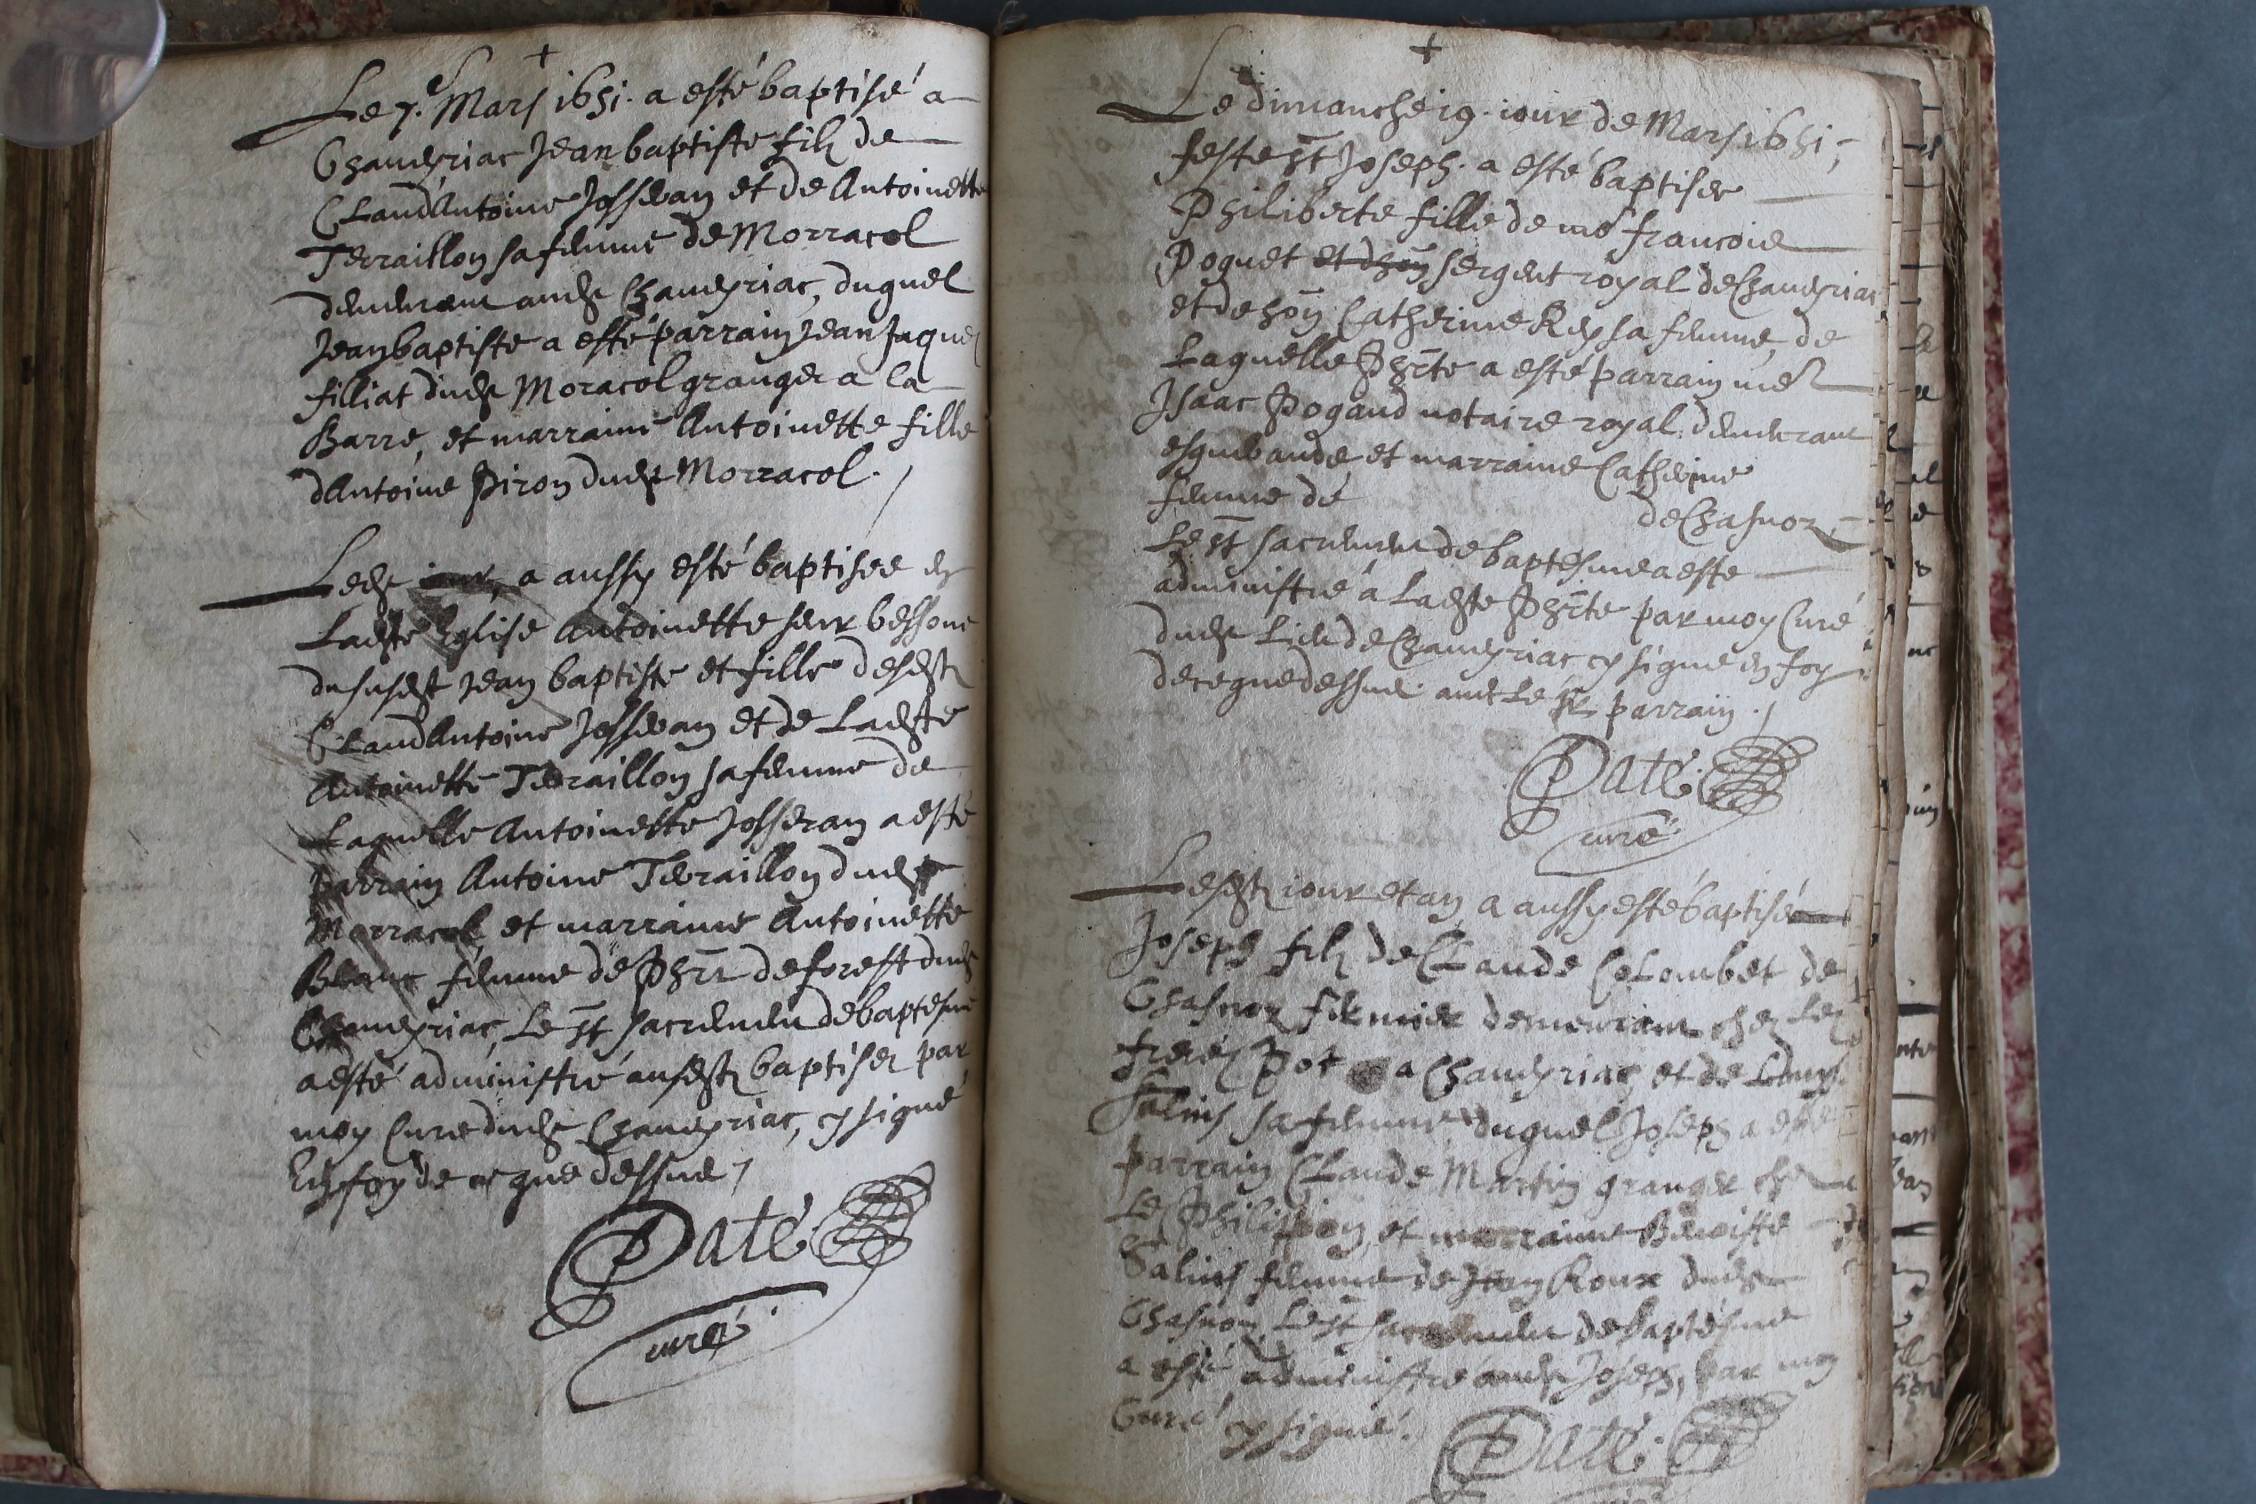 +
Le 7.e Mars 1651. a esté baptisé a
Chaveyriac Jean baptiste filz de
Claud Antoine Josseran et de Antoinette
Terraillon sa femme de Morracol
demeurant audt Chaveyriac, duquel
Jean baptiste a esté parrain Jean Jaques
filliat dudt Moracol granger a la
Barre, et marraine Antoinette fille
d'Antoine Piron dudt Morracol.
Ledt jour, a aussy esté baptisee en
Ladte Eglise Antoinette seur bessone
du susdt Jean baptiste et fille desdts
Claud Antoine Josseran et de Ladte
Antoinette Terraillon sa femme de
Laquelle Antoinette Josseran a esté
parrain Antoine Terraillon dudt
Morracol, et marraine Antoinette
Blanc femme de Phirt deforest dudt
Chaveyriac, Le st sacrement de baptesme
a esté administré ausdts baptisez par
moy Curé dudt Chaveyriac, cy signé
En foy de ce que dessus
Daté
curé
+
Le dimanche 19. jour de Mars 1651,
feste st Joseph. a esté baptisee
Philiberte fille de me francois
Poguet et dhon sergent royal de Chaveyriac
et de hon Catherine Rey sa femme, de
Laquelle Phirte a esté parrain me
Isaac Pogand notaire royal demeurant
et marraine Catherine
femme de de Chasnoz
Le st sacrement de baptesme a esté
administré a Ladte Phirte par moy Curé
dudt Lieu de Chaveyriac cy signé en foy
de ce que dessus avec Le sr parrain.
Daté
curé
Lesdts jour et an a aussy esté baptisé
Joseph filz de Claude Colombet de
Chasnoz fermier demeurant chez Les
freres Pot a Chaveyriac et de
Salins sa femme duquel Joseph a esté
parrain Claude Martin granger chez
Les Philippon, et marraine Benoiste
Salins femme de Jean Roux dudt
Chasnoz, Le st sacrement de baptesme
a esté administré audt Joseph, par moy
Curé cy signé.
Daté